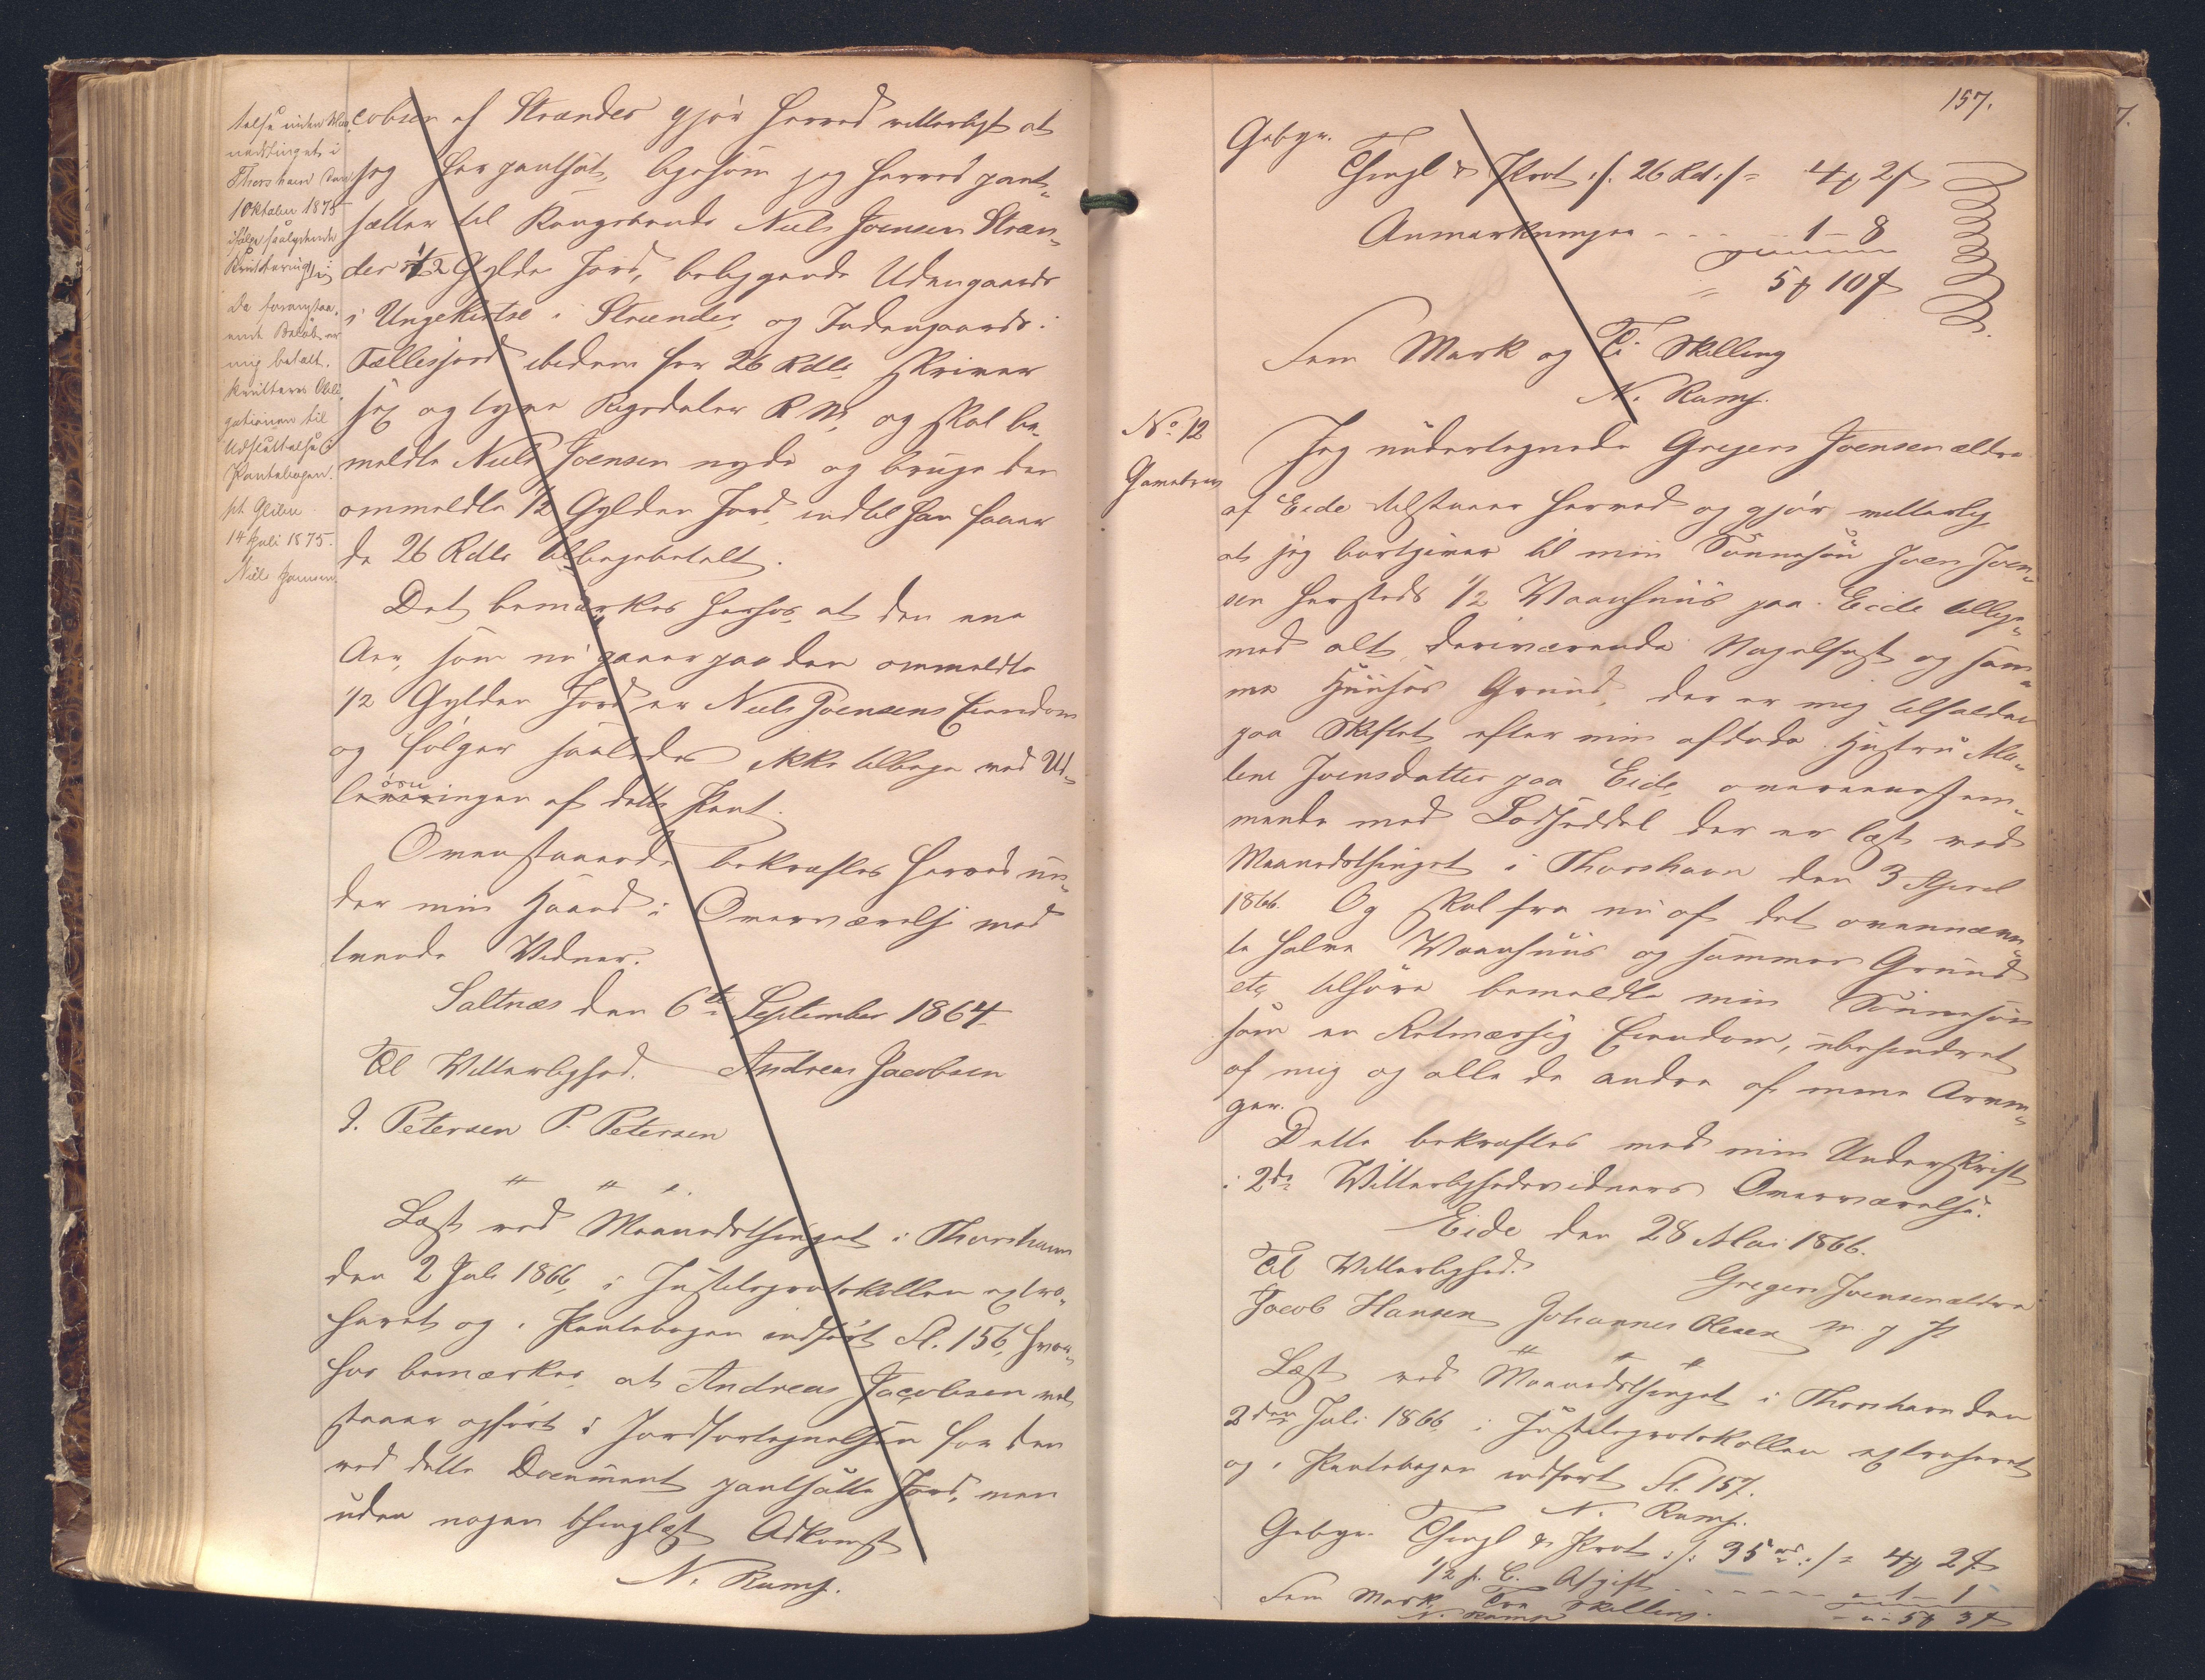 telse inden Maa-
nedstinget i
Thorshavn den
1 Oktober 1875
ifølge saalydende
Kvittering:
Da foranstaa-
ende Beløb er
mig betalt,
kvitteres Obli-
gationen til
Udslettelse i
Pantebogen.
pt. Glibre
14 Juli 1875.
Niels Joensen.
cobsen af Strænder gjør herved vitterligt at
jeg har pantsat, ligesom jeg herved pant-
sætter til Kongsbonde Niels Joensen Stræn-
der 1/2 Gylden Jord, beliggende Udengaards
i Ungekirtse i Strænder, og Indengaards i
Fællesjord ibidem for 26 Rdlr, skriver
sex og tyve Rigsdaler R. M., og skal be-
meldte Niels Joensen nyde og bruge den
ommeldte 1/2 Gylden Jord, indtil han faaer
de 26 Rdlr tilbagebetalt.
Det bemærkes herhos, at den ene
Aer, som nu gaaer paa den ommeldte
1/2 Gylden Jord er Niels Joensens Eiendom
og følger saaledes ikke tilbage ved Ud-
løsningen af dette Pant.
Ovenstaaende bekræftes herved un-
der min Haand i Overværelse med
tvende Vidner.
Saltnæs den 6te September 1864
Til Vitterlighed. Andreas Jacobsen
J. Petersen P. Petersen
" " "
Læst ved Maanedsthinget i Thorshavn
den 2 Juli 1866, i Justitsprotokollen extra-
heret og i Pantebogen indført Fl. 156, hvor-
hos bemærkes, at Andreas Jacobsen vel
staaer opført i Jordfortegnelsen for den
ved dette Document pantsatte Jord, men
uden nogen thinglæst Adkomst
N. Rump.
157.
Gebyr.
Thingl & Prot :/: 26 Rd :/: = 4 ₰ 2 ß
Anmærkningen - - - 1 - 8
= 5 ₰ 10 ß
Fem Mark og Ti Skilling
N. Rump.
No 12
Gavebrev
Jeg undertegnede Gregers Joensen ældre
af Eide tilstaaer herved og gjør vitterlig
at jeg bortgiver til min Sønnesøn Joen Joen-
sen hersteds 1/2 Vaanhuus paa Eide tillige-
med alt deriværende Nagelfast og sam-
me Huuses Grund, der er mig tilfalden
paa Skiftet efter min afdøde Hustru Ma-
lene Joensdatter paa Eide, overeenstem-
mende med Lodseddel der er læst ved
Maanedsthinget i Thorshavn den 3 April
1866. Og skal fra nu af det ovennævn-
te halve Vaanhuus og sammes Grund
etc tilhøre bemeldte min Sønnesøn
som en Retmæssig Eiendom, ubehindret
af mig og alle de andre af mine Arvin-
ger.
Dette bekræftes med min Underskrift
i 2de Vitterlighedsvidners Overværelse.
Eide den 28 Mai 1866.
Til Vitterlighed. Gregers Joensen ældre
Jacob Hansen Johannes Olesen m. f. P.
" " "
Læst ved Maanedsthinget i Thorshavn den
2den Juli 1866, i Justitsprotokollen extraheret
og i Pantebogen indført Fl. 157.
N. Rump.
Gebyr. Thingl & Prot :/: 35 rd :/: = 4 ₰ 2 ß
1/2 p. C. Afgift - - - - - - 1 - 1
- " - 5 ₰ 3 ß
Fem Mark Tre Skilling.
N. Rump